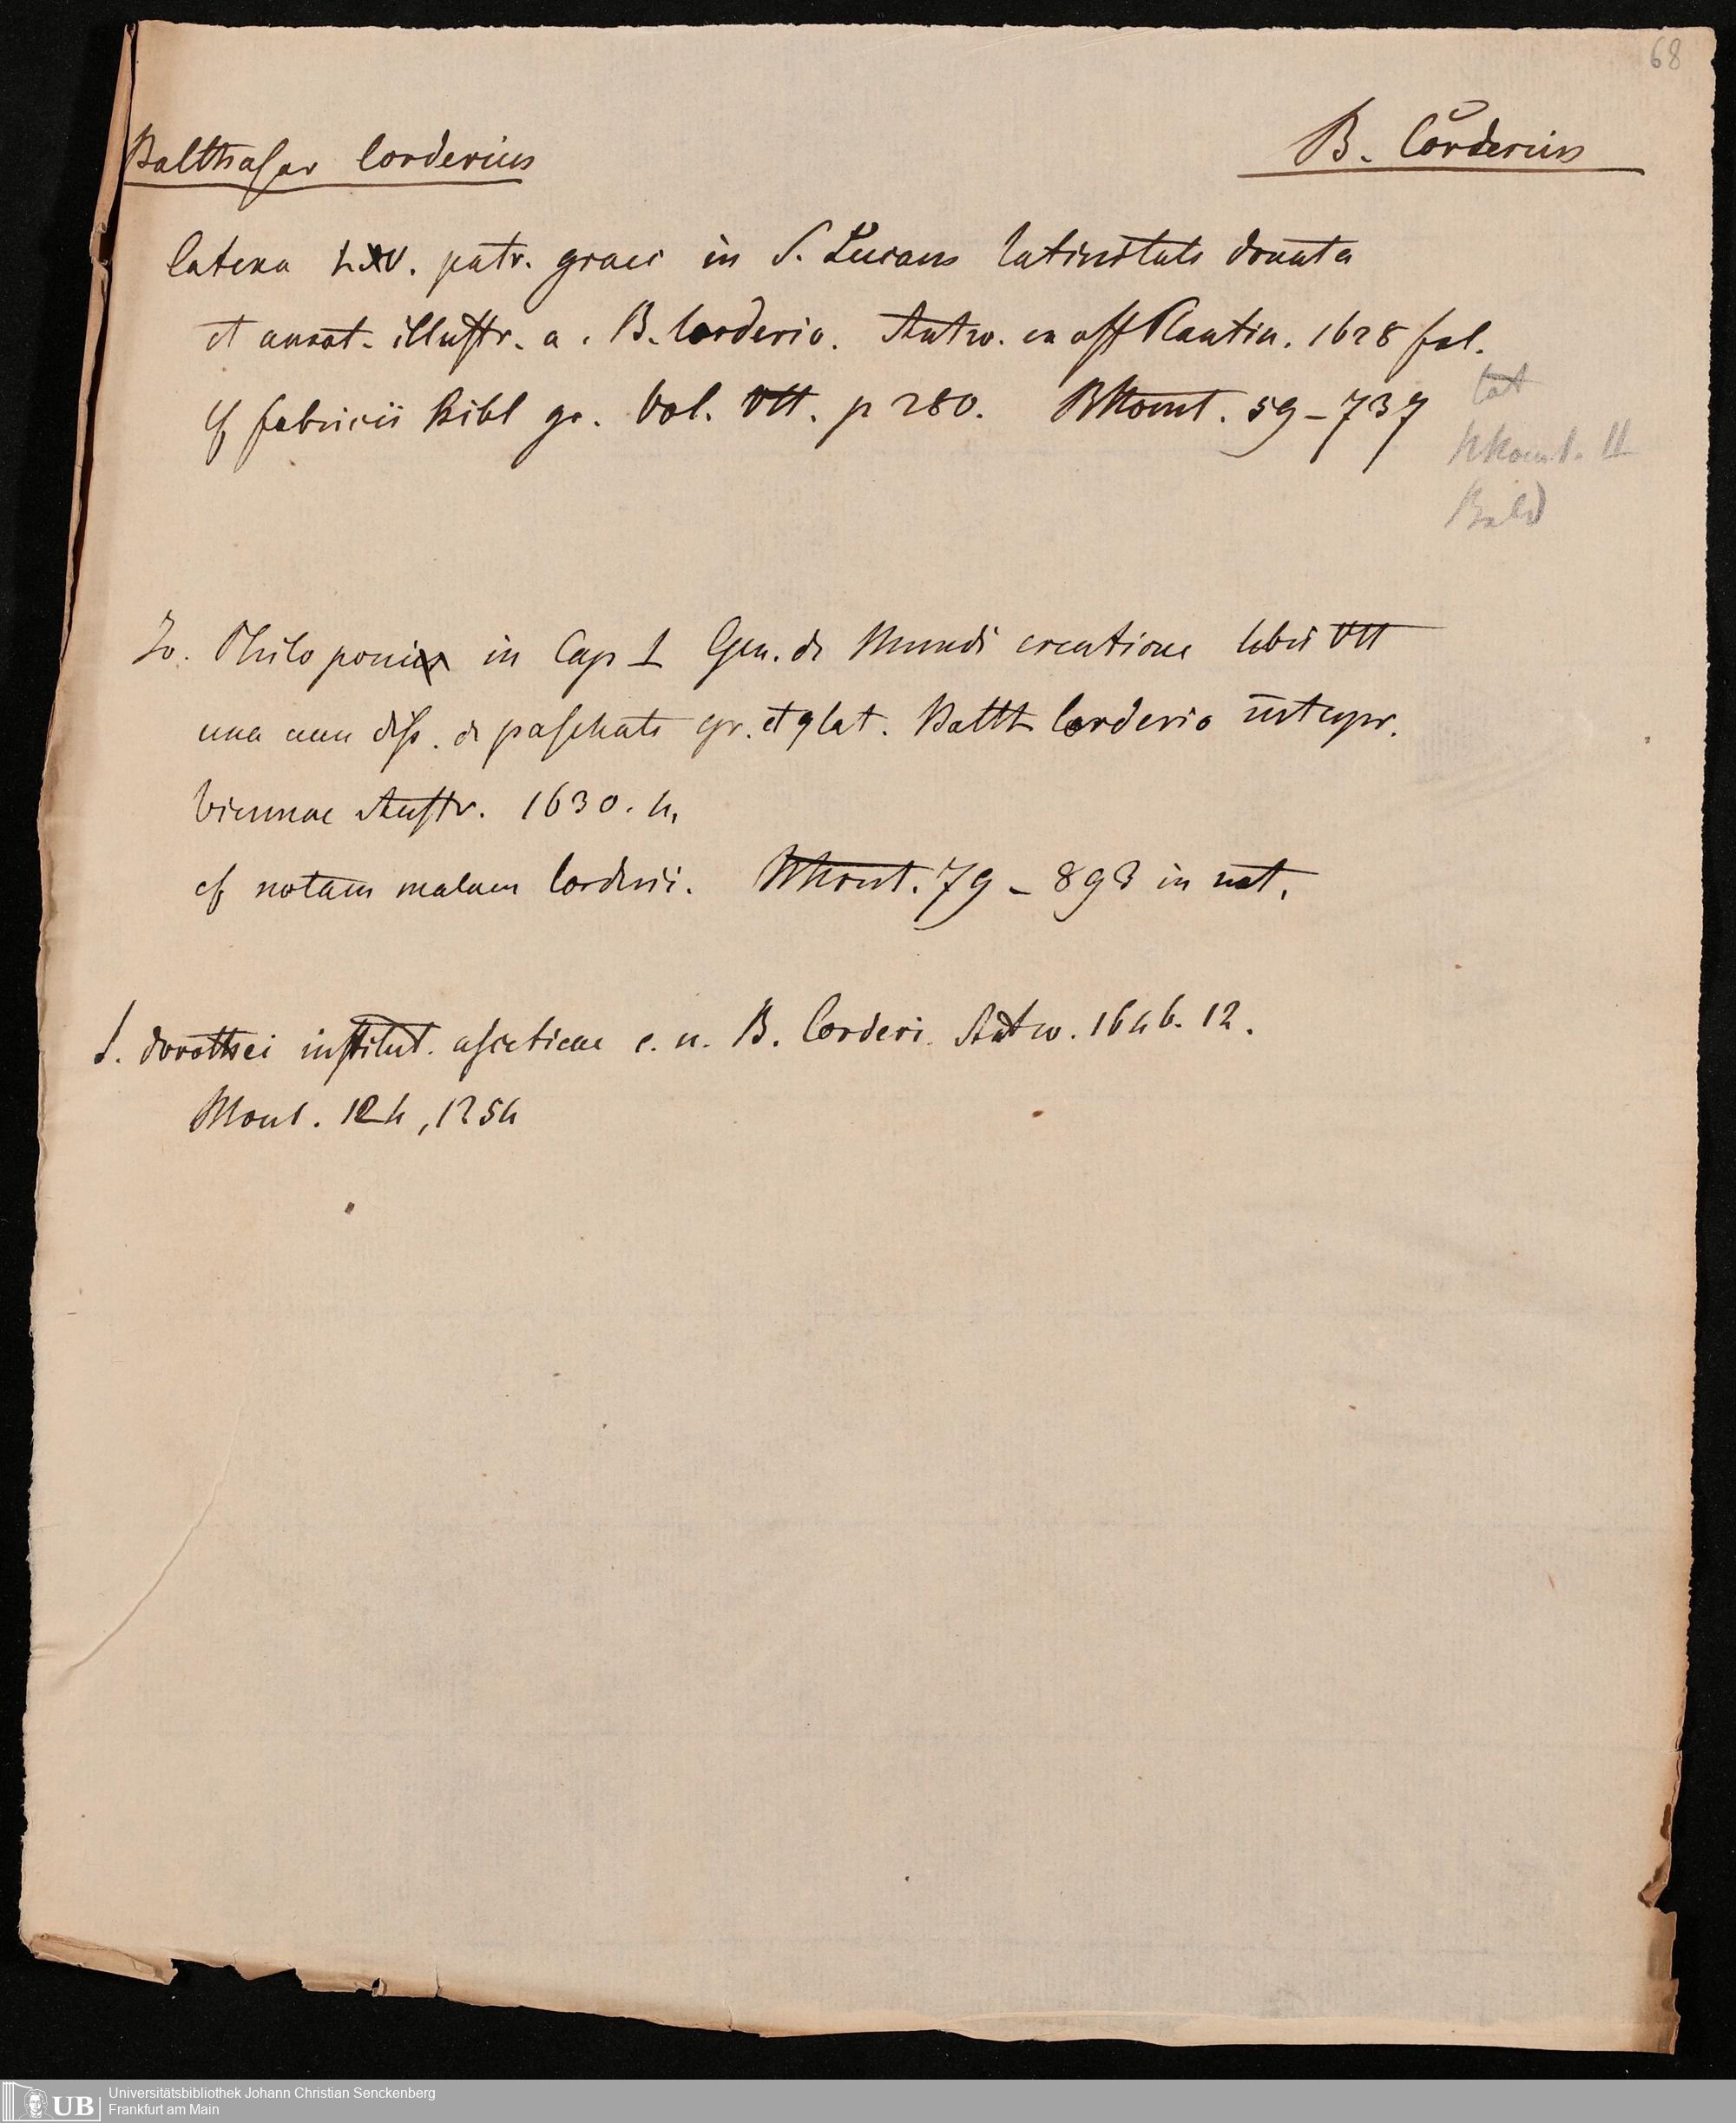 68
Balthasar Corderius
B. Corderius
Catena LXV. patr. graec in S. Lucam latinitate donata
et annot. illustr. a. B. Corderio. Antw. ex off Plantin. 1628 fol.
cf fabricii Bibl gr. Vol. VII. p 280. BMont. 59-737
Cat
Bald
Jo. Philoponi in Cap I Gen. de Mundi creatione libri VII
una cum disp. de paschate gr. et lat. Balth Corderio interpr.
Viennae Austr. 1630. 4.
cf notam malam Corderii. Mont. 79-898 in not.
S. dorothei institut. asceticae e. u. B. Corderi. Antw. 1646. 12.
Mont. 124, 1254
UB
Universitätsbibliothek Johann Christian Senckenberg
Frankfurt am Main